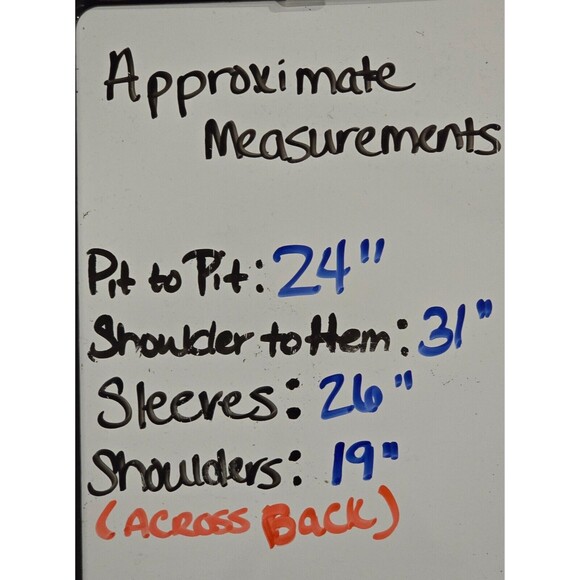 Approximate
Measurements
Pit to Pit: 24"
Shoulder to Hem: 31"
Sleeves: 26"
Shoulders: 19"
(ACROSS BACK)